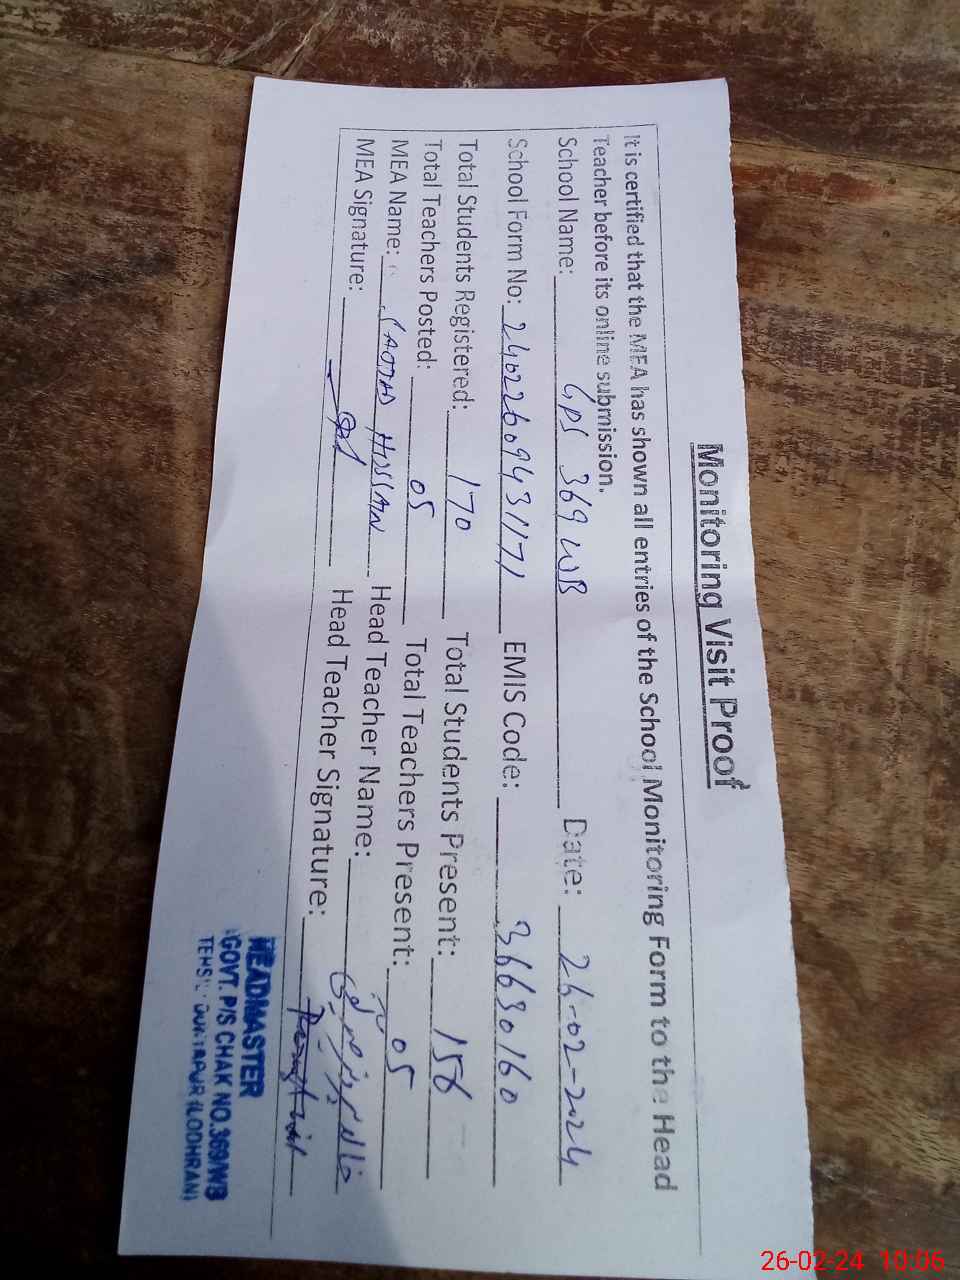 Monitoring Visit Proof
It is certified that the MEA has shown all entries of the School Monitoring Form to the Head
Teacher before its online submission.
School Name: GPS 369 WB Date: 26-02-2024
School Form No: 24022609431171 EMIS Code: 36630160
Total Students Registered: 170 Total Students Present: 156
Total Teachers Posted: 05 Total Teachers Present: 05
MEA Name: Head Teacher Name:
MEA Signature: Head Teacher Signature:
HEADMASTER
GOVT. P/S CHAK NO.369/WB
TEHSIL DUNYAPUR (LODHRAN)
26-02-24 10:06